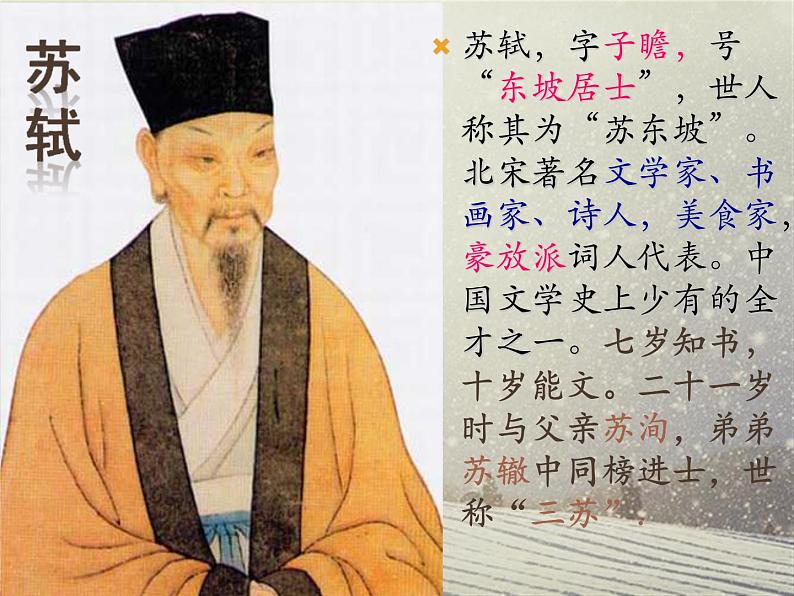 苏轼
苏轼，字子瞻，号
“东坡居士”，世人
称其为“苏东坡”。
北宋著名文学家、书
画家、诗人，美食家，
豪放派词人代表。中
国文学史上少有的全
才之一。七岁知书，
十岁能文。二十一岁
时与父亲苏洵，弟弟
苏辙中同榜进士，世
称“三苏”.